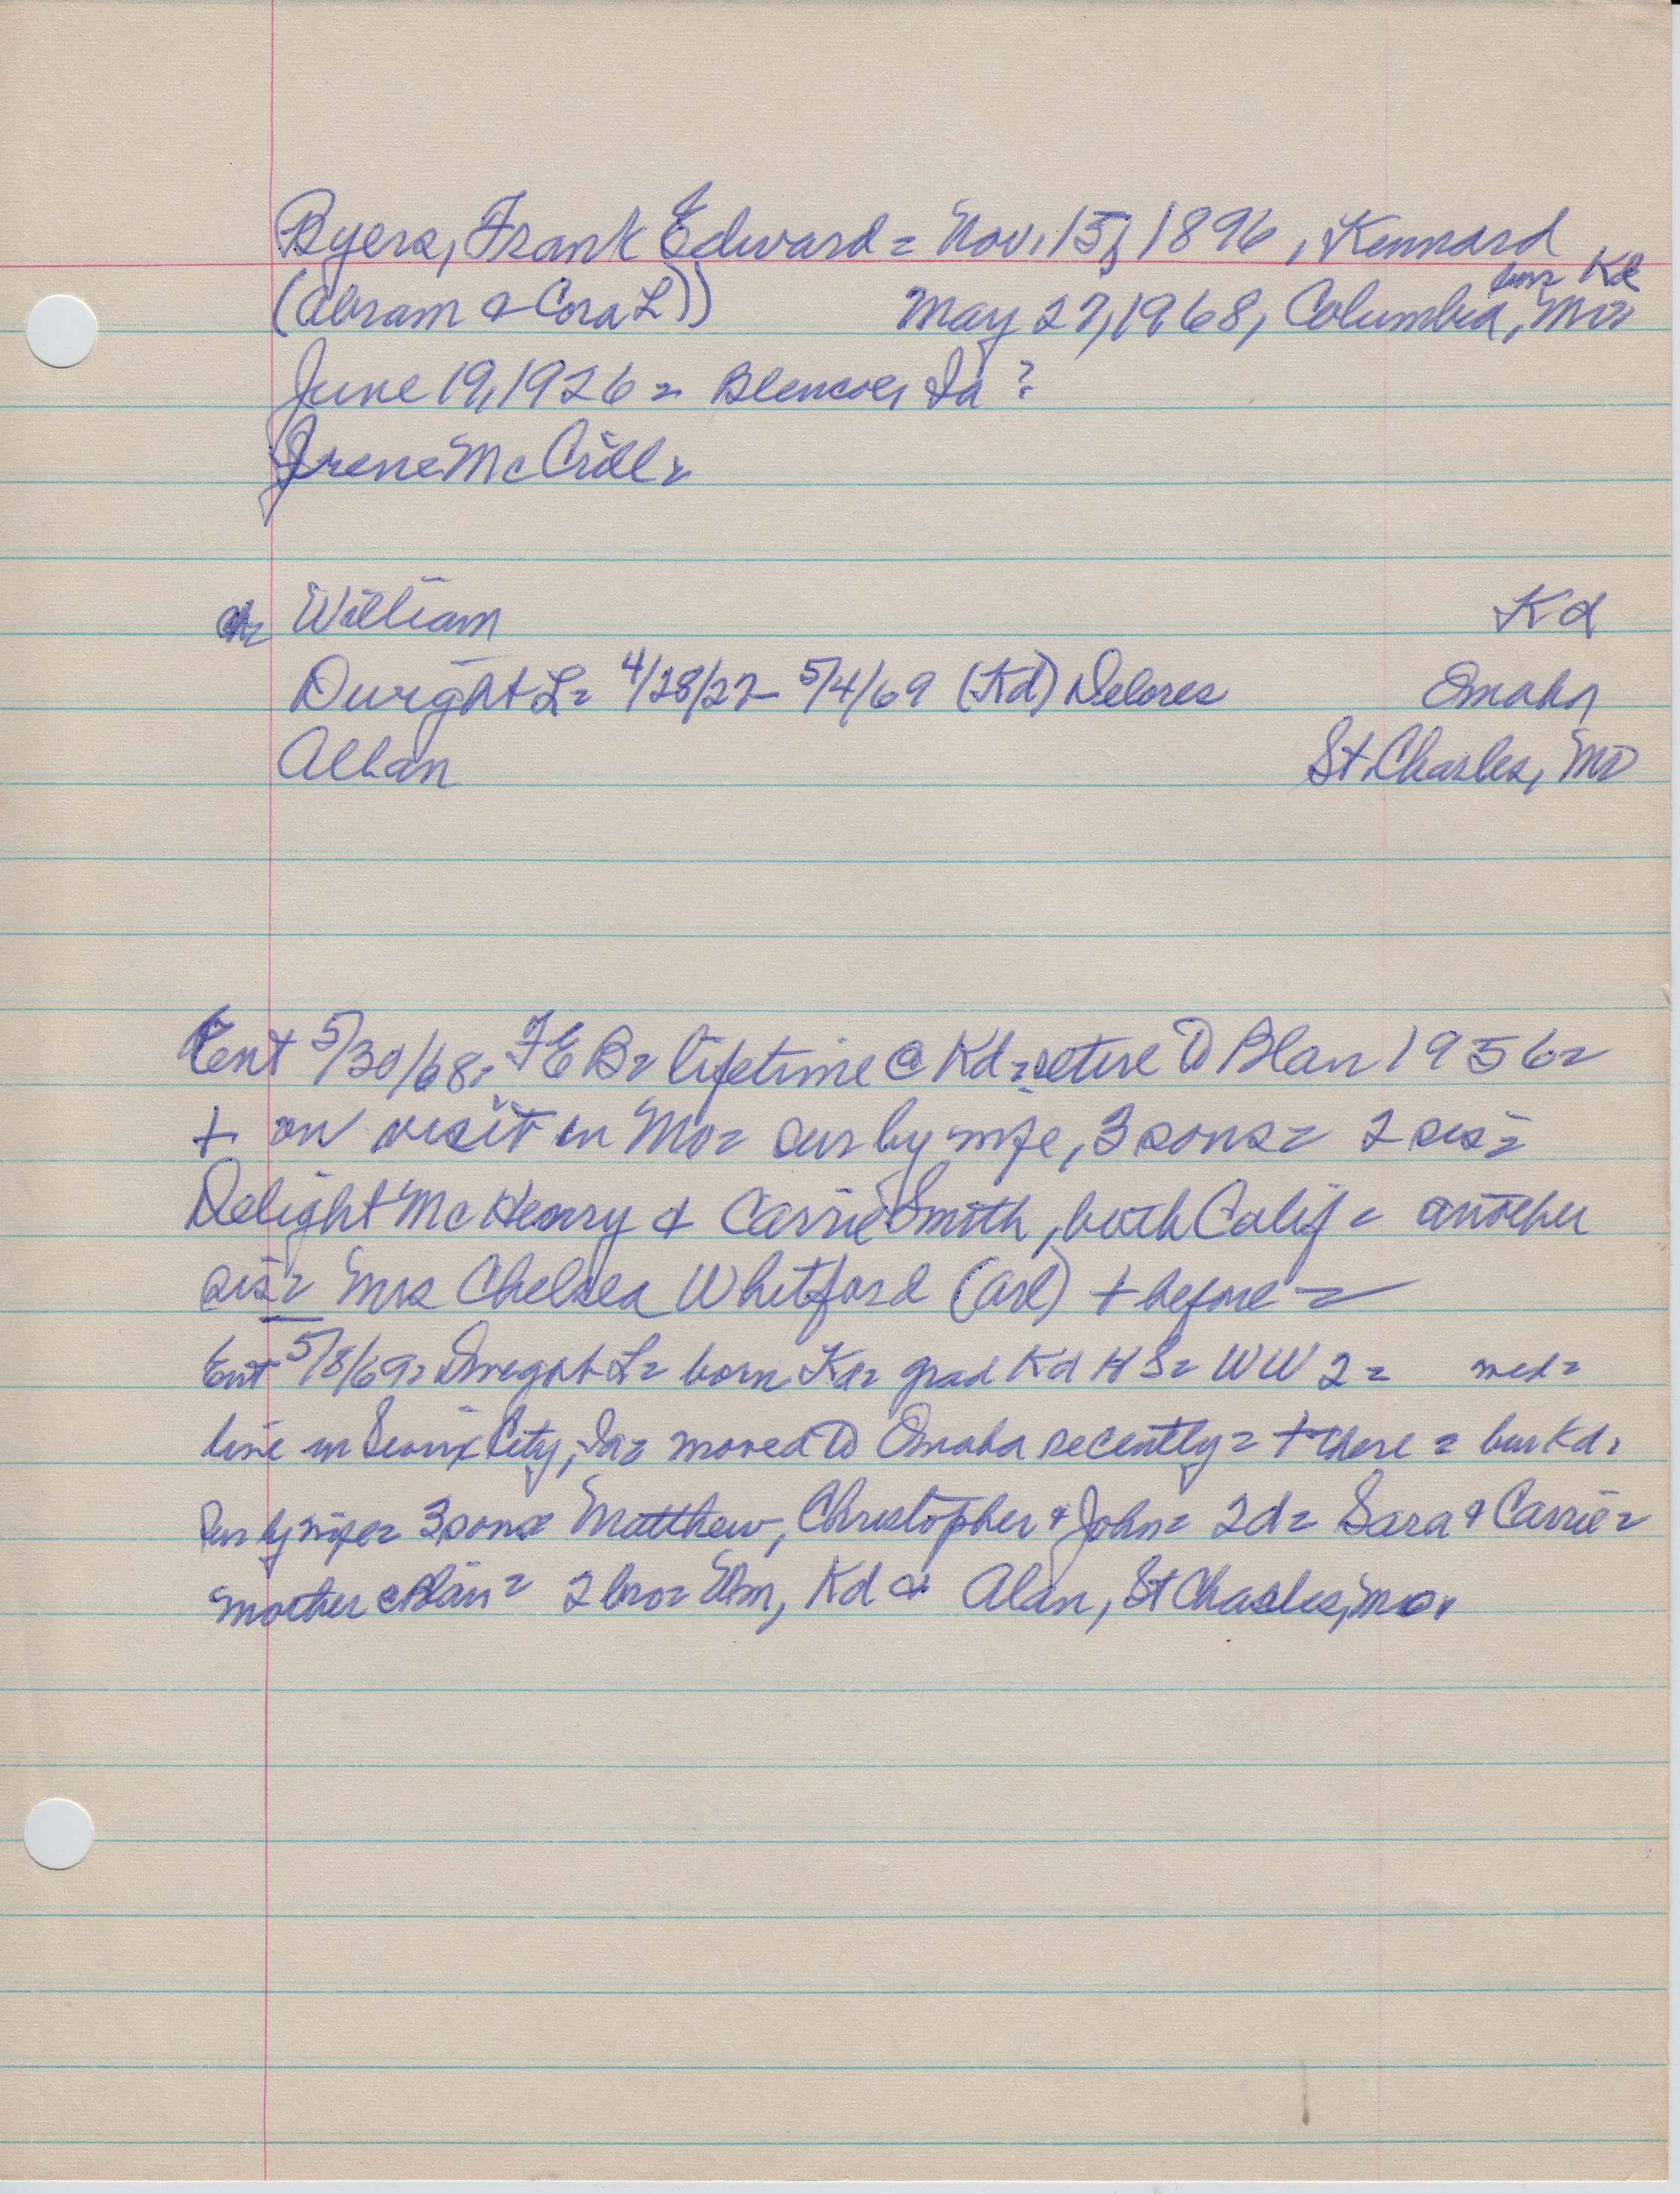 Byers, Frank Edward = Nov. 15, 1896, Kennard
(Abram & Cora L)) May 27, 1968, Columbia, Mo= bur Kd
June 19, 1926 = Blencoe, Ia ?
Irene McCrill =
ch= William Kd
Dwight L= 4/28/27- 5/4/69 (Kd) Delores Omaha
Allan St Charles, Mo
Ent 5/30/68= F E B= lifetime @ Kd = retire to Blair 1956=
+ on visit in Mo= sur by wife, 3 sons = 2 sis=
Delight McHenry & Carrie Smith, both Calif = another
sis= Mrs Chelsea Whitford (Arl) + before =
Ent 5/8/69= Dwight L= born Kd= grad Kd H S= WW 2 = med=
live in Sioux City, Ia= moved to Omaha recently = + there = bur Kd=
Sur by wife= 3 sons= Matthew, Christopher & John= 2 d= Sara & Carrie=
mother @ Blair = 2 bro= Wm, Kd & Alan, St Charles, Mo.